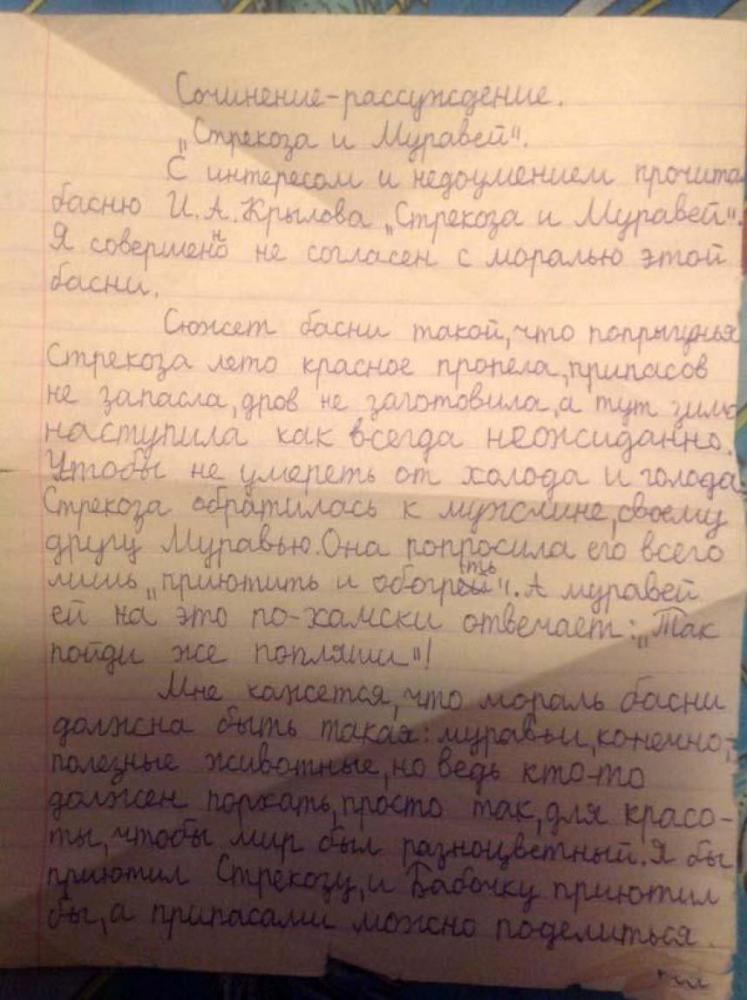 Сочинение-рассуждение.
„Стрекоза и Муравей".
С интересом и недоумением прочита
басню И. А. Крылова „Стрекоза и Муравей".
Я совершенно не согласен с моралью этой
басни.
Сюжет басни такой, что попрыгунья
Стрекоза лето красное пропела, припасов
не запасла, дров не заготовила, а тут зима
наступила как всегда неожиданно.
Чтобы не умереть от холода и голода
Стрекоза обратилась к мужчине, своему
другу Муравью. Она попросила его всего
лишь „приютить и обогреть". А муравей
ей на это по-хамски отвечает: „Так
пойди же попляши"!
Мне кажется, что мораль басни
должна быть такая: муравьи, конечно,
полезные животные, но ведь кто-то
должен порхать, просто так, для красо-
ты, чтобы мир был разноцветный. Я бы
приютил Стрекозу, и Бабочку приютил
бы, а припасами можно поделиться.